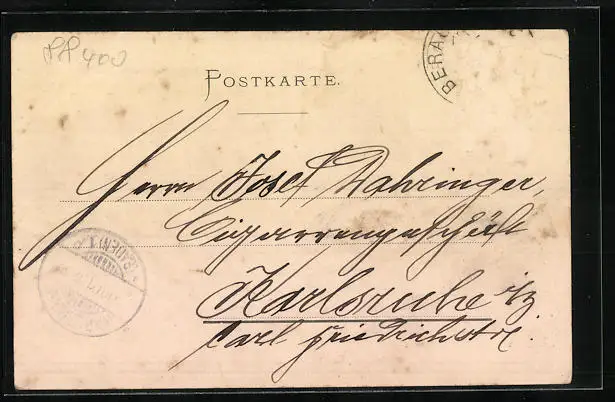 400
BERA
POSTKARTE.
Herrn Josef Dahringer,
Cigarrengeschäft
Karlsruhe i/B
Carl Friedrichstr.
(BADEN)